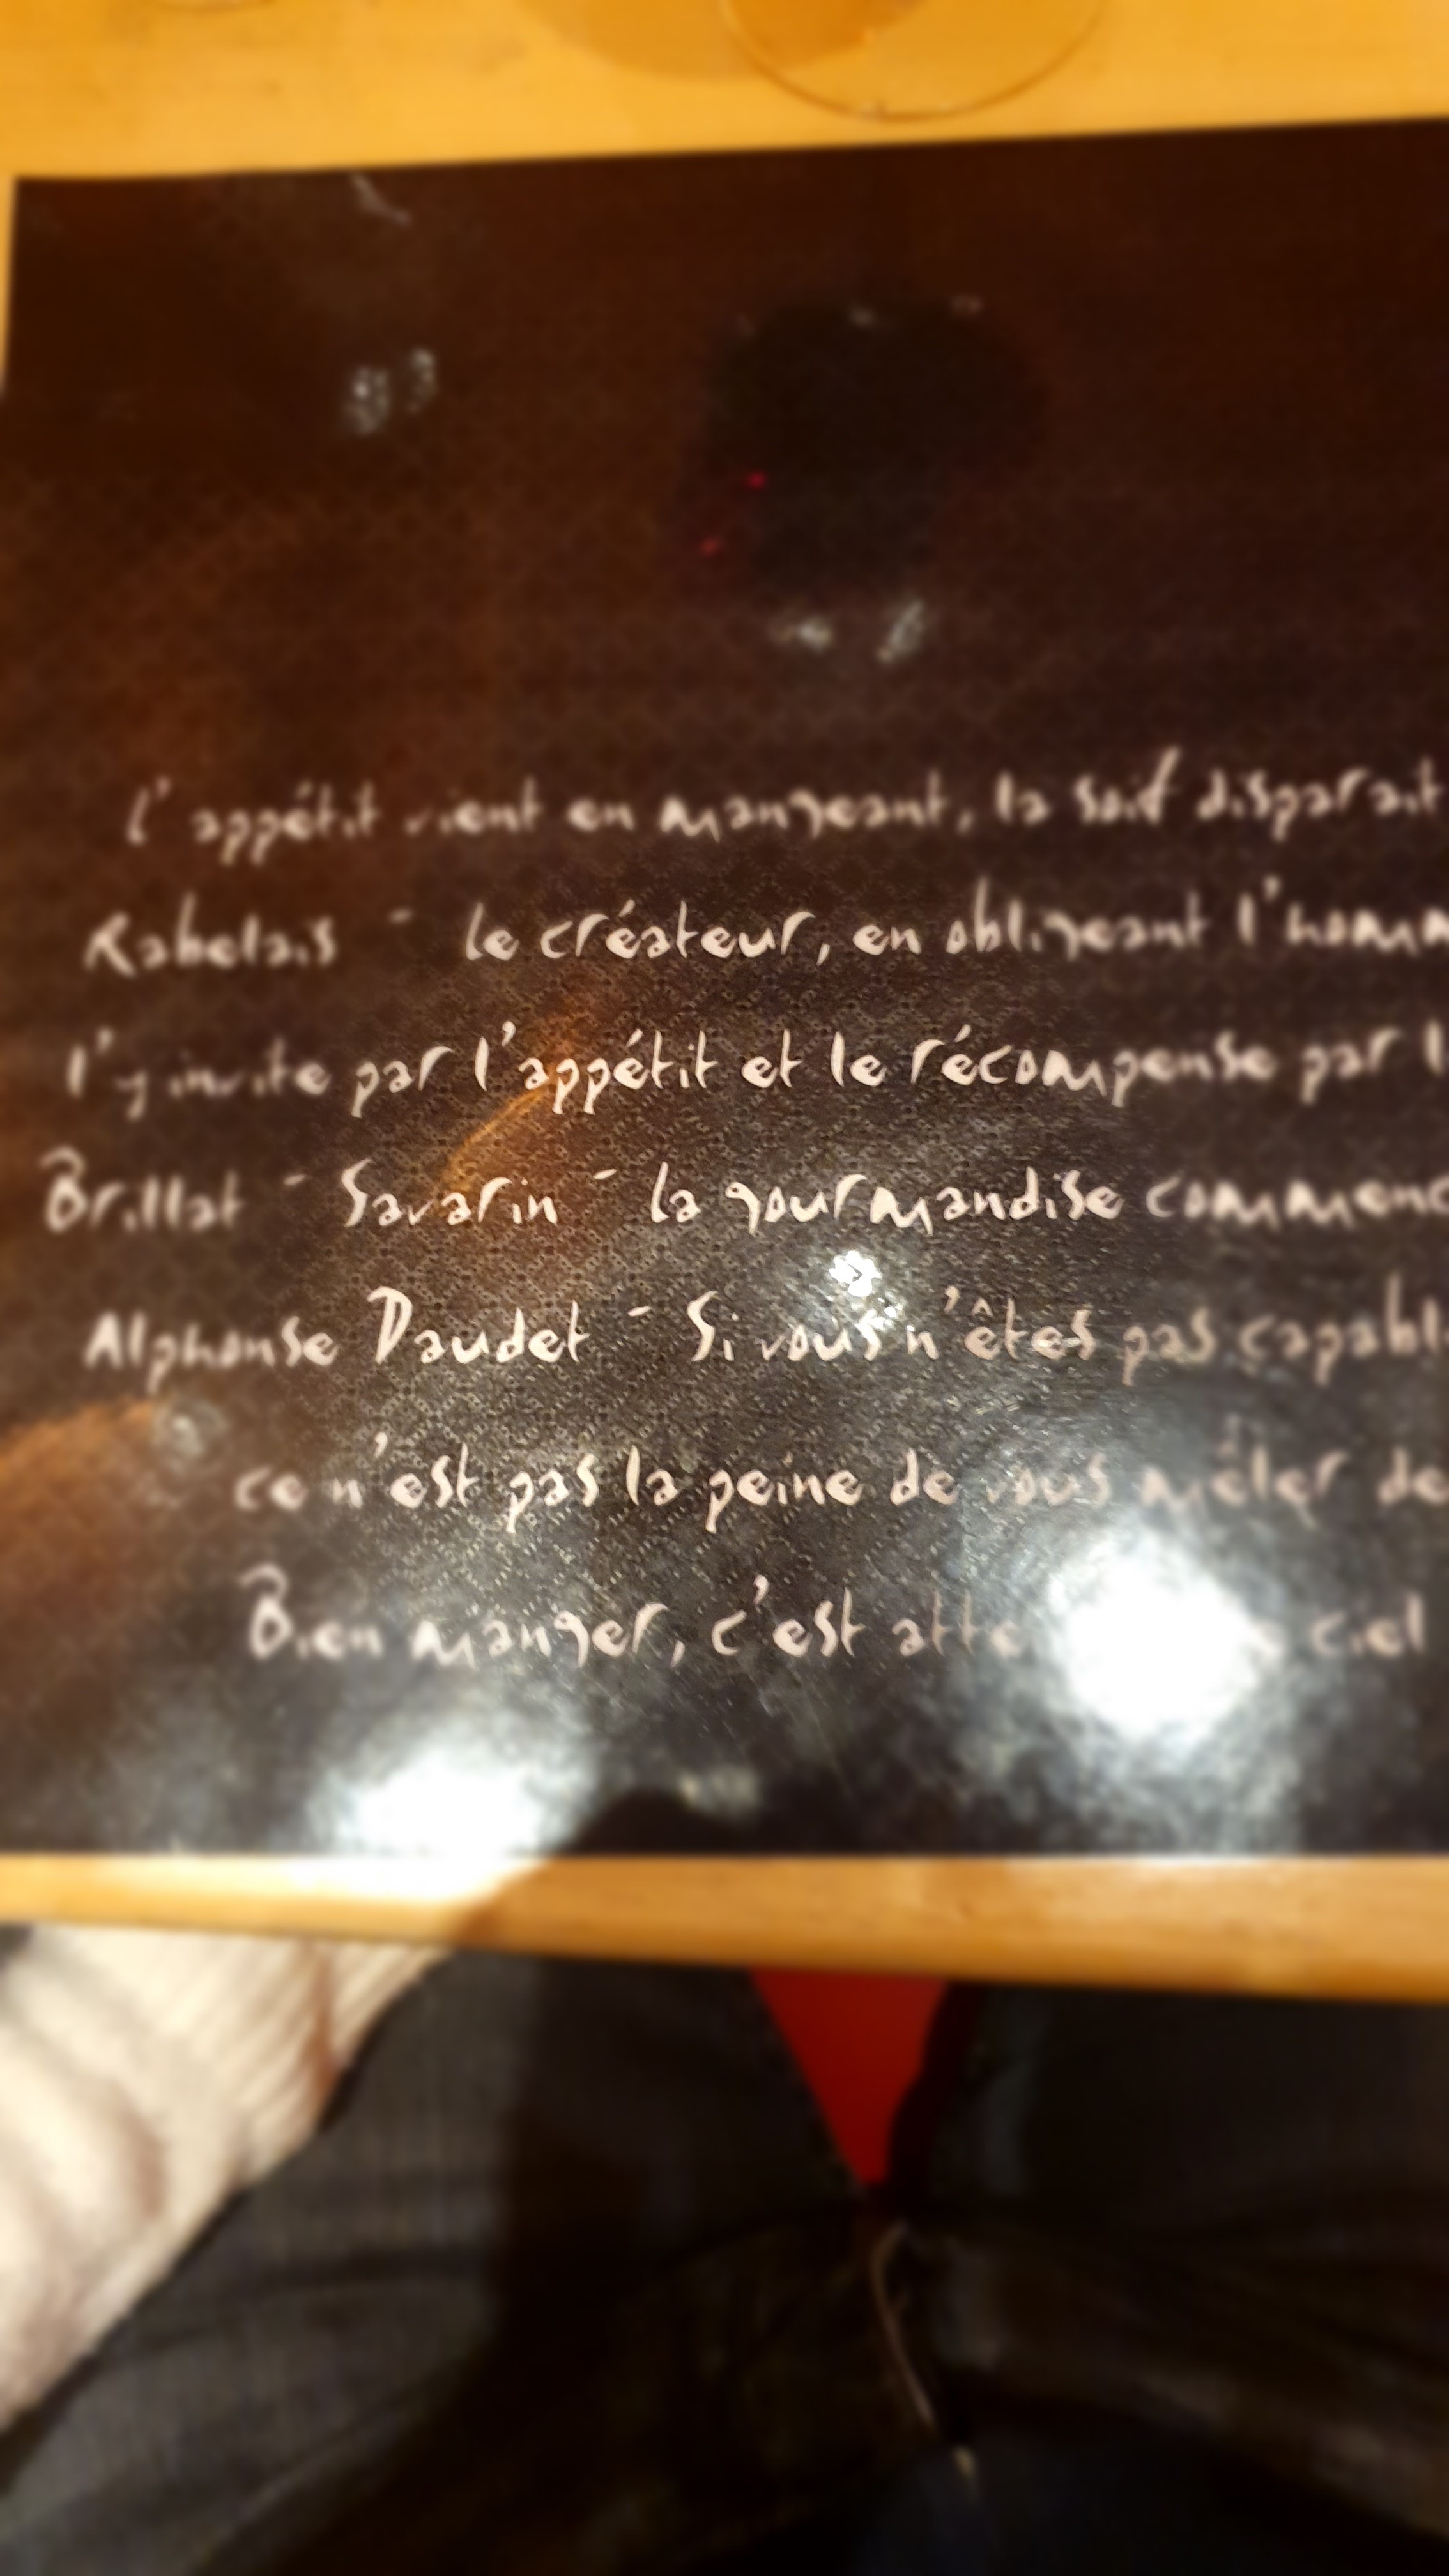 l'appétit vient en mangeant, la soif disparait
Rabelais - le créateur, en obligeant l'homm
l'y invite par l'appétit et le récompense par l
Brillat - Savarin - la gourmandise commenc
Alphonse Daudet - Si vous n'êtes pas capabl
ce n'est pas la peine de vous mêler de
Bien manger, c'est atte ciel